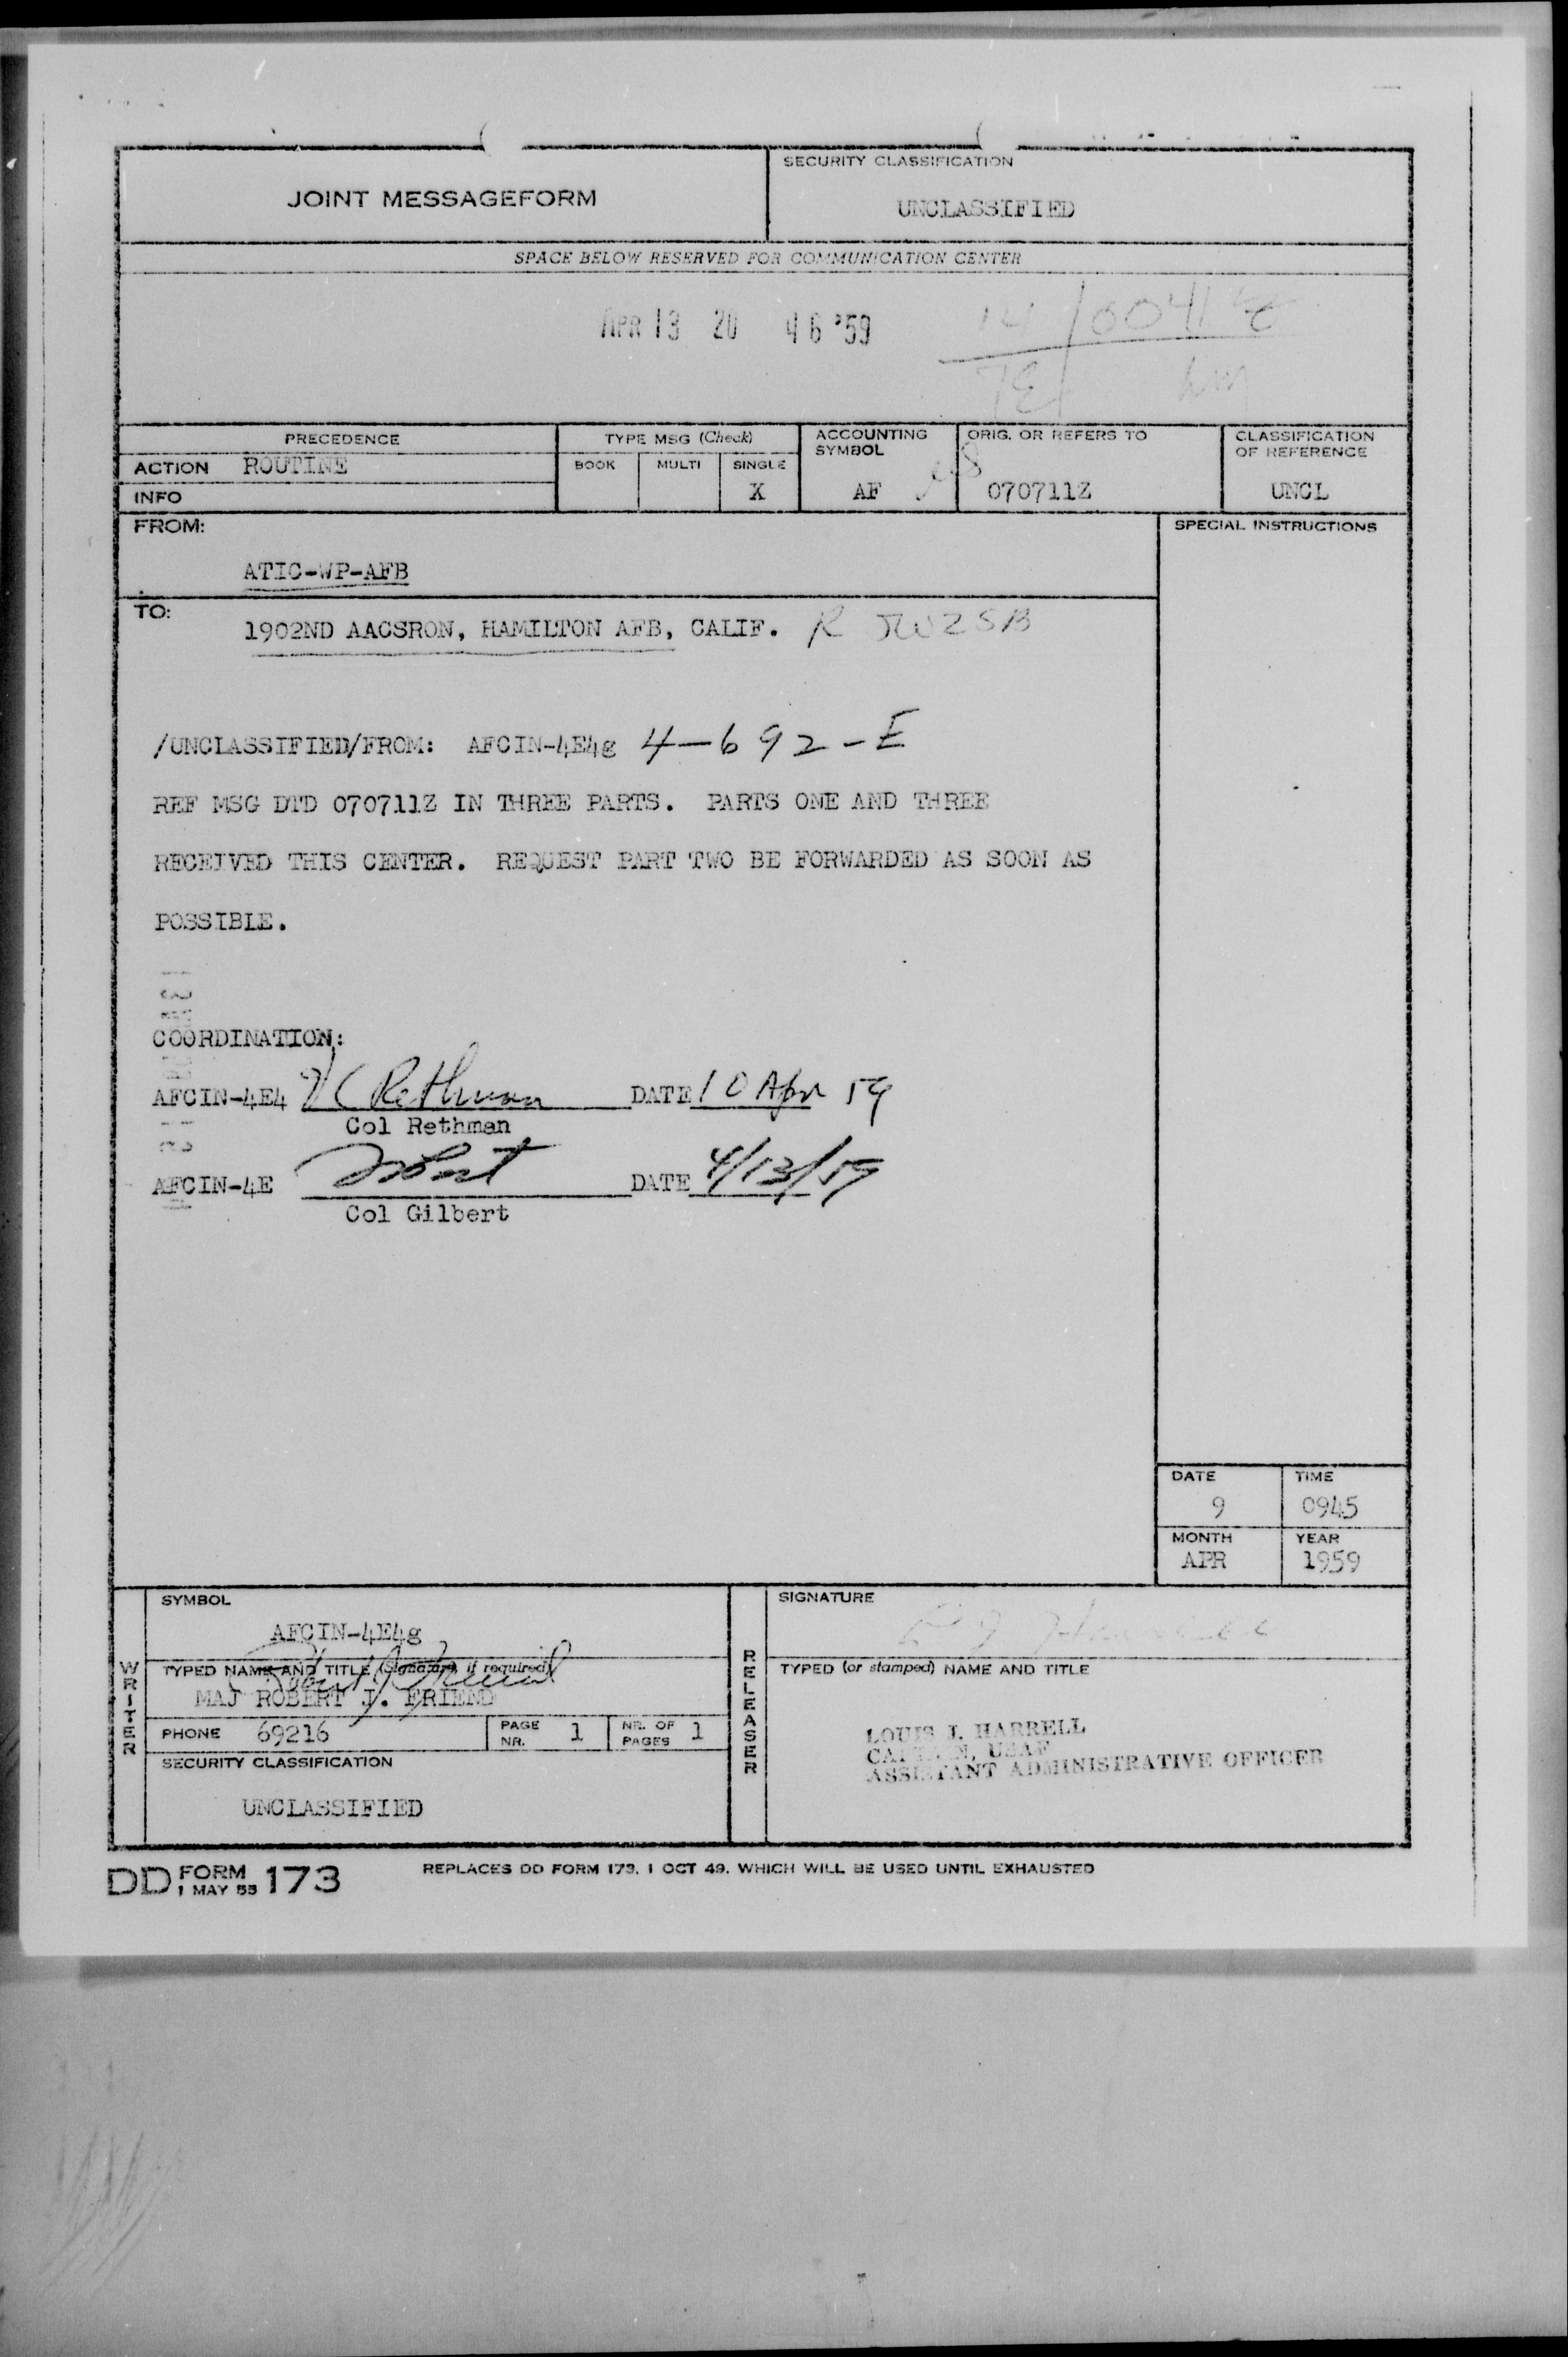 JOINT MESSAGEFORM
SECURITY CLASSIFICATION
UNCLASSIFIED
SPACE BELOW RESERVED FOR COMMUNICATION CENTER
APR 13 20 46 '59
14/0041Z
PRECEDENCE
ACTION ROUTINE
INFO
TYPE MSG (Check)
BOOK MULTI SINGLE
X
ACCOUNTING SYMBOL
AF
ORIG. OR REFERS TO
070711Z
CLASSIFICATION OF REFERENCE
UNCL
FROM:
ATIC-WP-AFB
SPECIAL INSTRUCTIONS
TO:
1902ND AACSRON, HAMILTON AFB, CALIF. R JWZSB
/UNCLASSIFIED/FROM: AFCIN-4E4g 4-692-E
REF MSG DTD 070711Z IN THREE PARTS. PARTS ONE AND THREE
RECEIVED THIS CENTER. REQUEST PART TWO BE FORWARDED AS SOON AS
POSSIBLE.
COORDINATION:
AFCIN-4E4 Rethman DATE 10 Apr 59
Col Rethman
AFCIN-4E DATE 4/13/59
Col Gilbert
DATE TIME
9 0945
MONTH YEAR
APR 1959
WRITER
SYMBOL
AFCIN-4E4g
TYPED NAME AND TITLE (Signature, if required)
MAJ ROBERT J. FRIEND
PHONE 69216
PAGE NR. 1
NR. OF PAGES 1
SECURITY CLASSIFICATION
UNCLASSIFIED
RELEASER
SIGNATURE
TYPED (or stamped) NAME AND TITLE
LOUIS J. HARRELL
CAPTAIN, USAF
ASSISTANT ADMINISTRATIVE OFFICER
DD FORM 1 MAY 55 173
REPLACES DD FORM 173, 1 OCT 49, WHICH WILL BE USED UNTIL EXHAUSTED